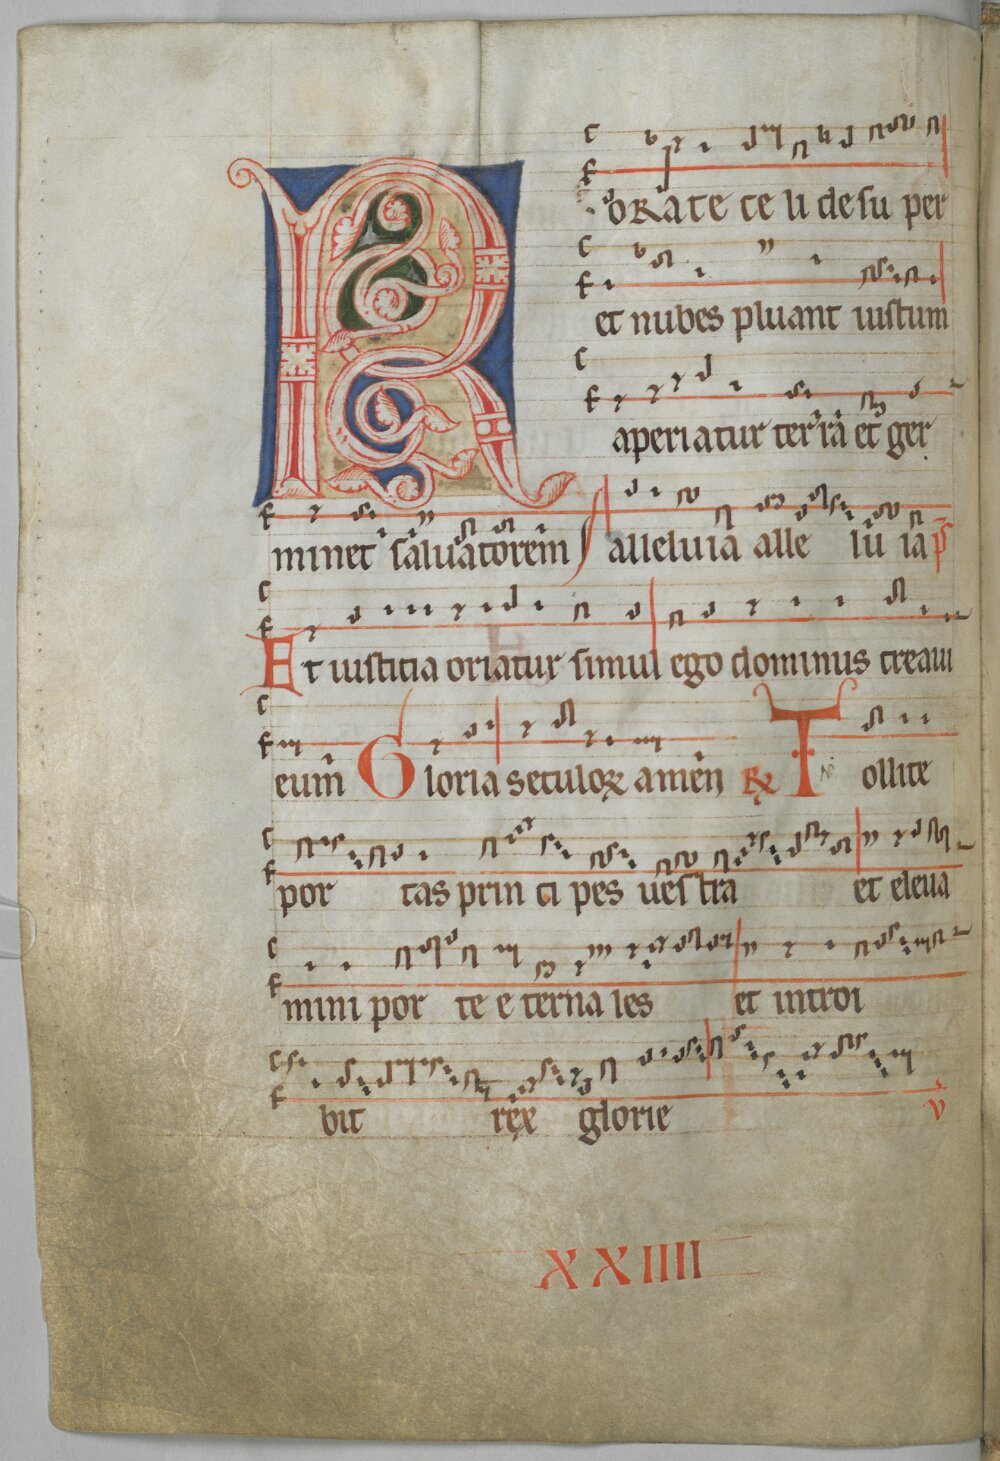 RORATE CE li de su per
et nubes pluant iustum
aperiatur ter rā et ger
minet saluatorem alleluia alle lu ia p̄s
Et iusticia oriatur simul ego dominus creaui
eum Gloria seculoꝝ amen ℞ Tollite
por tas prin ci pes uestra et eleua
mini por te e terna les et introi
bit rex glorie v
XXIIII